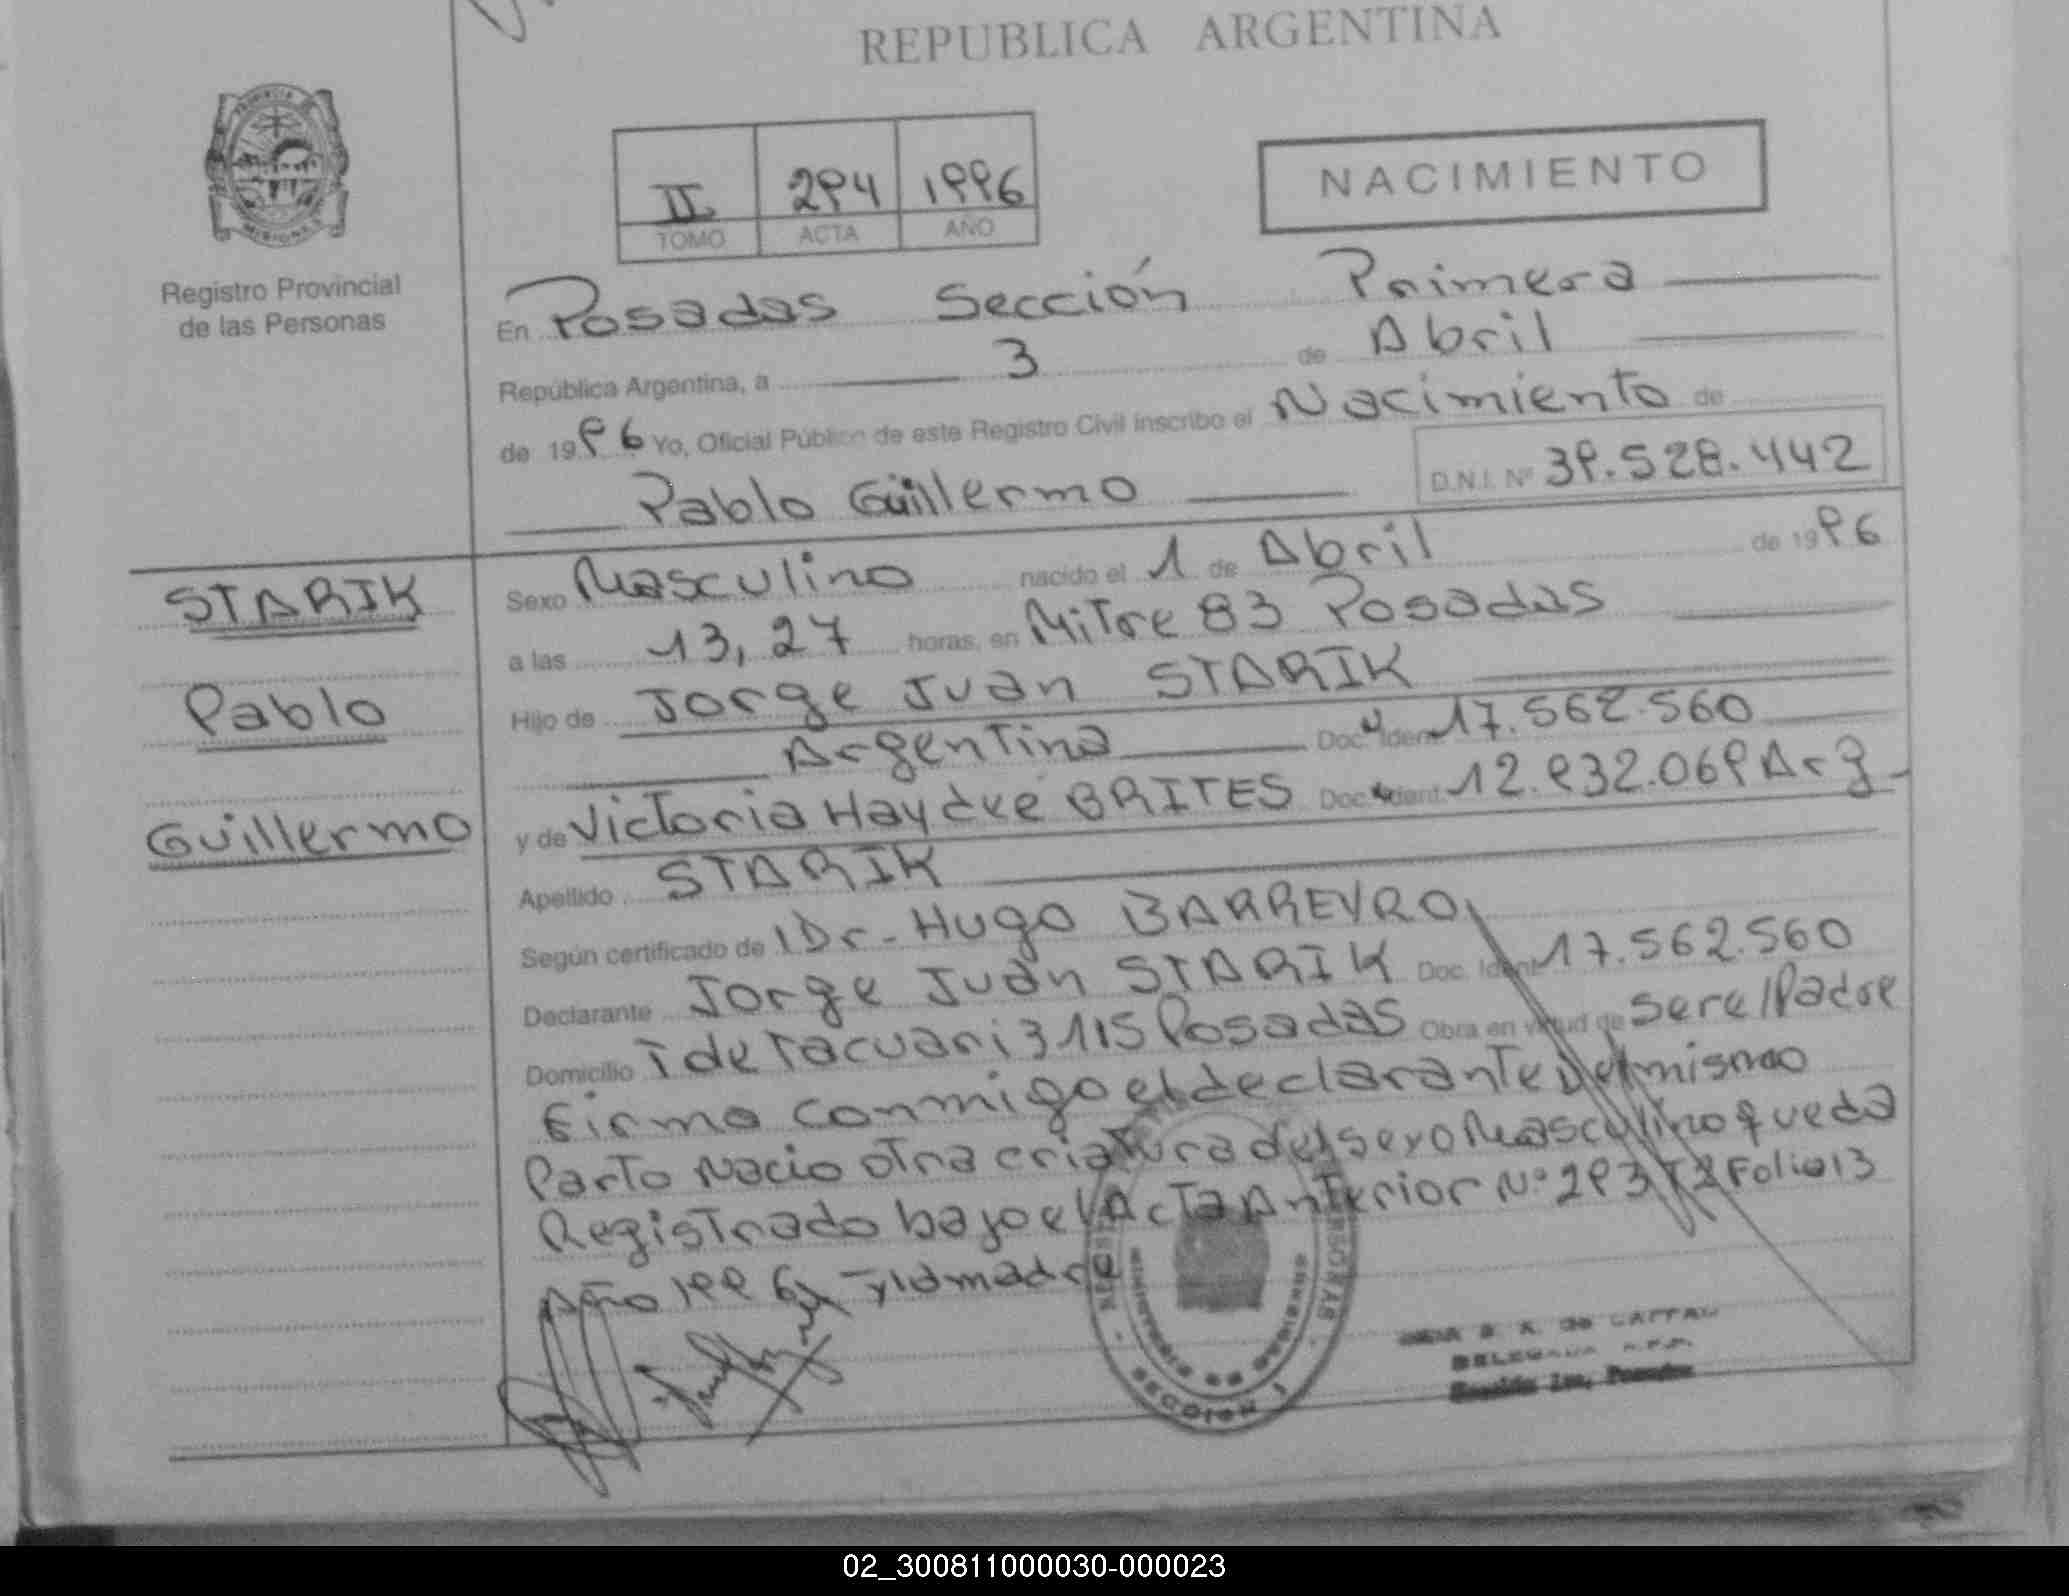 REPUBLICA ARGENTINA
PROVINCIA DE MISIONES
Registro Provincial
de las Personas
II 294 1996
TOMO ACTA AÑO
NACIMIENTO
En Posadas Sección Primera
República Argentina, a 3 de Abril
de 1996 Yo, Oficial Público de este Registro Civil inscribo el Nacimiento de
Pablo Guillermo D.N.I. Nº 39.528.442
STARIK
Pablo
Guillermo
Sexo Masculino nacido el 1 de Abril de 1996
a las 13,27 horas, en Mitre 83 Posadas
Hijo de Jorge Juan STARIK
Argentina Doc. Ident. 17.562.560
y de Victoria Haydee BRITES Doc. Ident. 12.932.069 Arg
Apellido STARIK
Según certificado de Dr. Hugo BARREYRO
Declarante Jorge Juan STARIK Doc. Ident. 17.562.560
Domicilio T de Tacuari 3115 Posadas Obra en virtud de ser el Padre
Firma conmigo el declarante Del mismo
Parto Nacio otra criatura del sexo Masculino queda
Registrado bajo el Acta Anterior Nº 293 T2 Folio 13
Año 1996 y la madre
SECCION 1
02_300811000030-000023